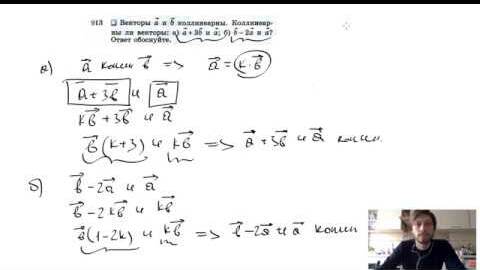 913 Векторы a⃗ и b⃗ коллинеарны. Коллинеар-
ны ли векторы: а) a⃗ + 3b⃗ и a⃗; б) b⃗ − 2a⃗ и a⃗?
Ответ обоснуйте.
а) a⃗ колин b⃗ => a⃗ = k·b⃗
a⃗ + 3b⃗ и a⃗
kb⃗ + 3b⃗ и a⃗
b⃗(k+3) и kb⃗ => a⃗ + 3b⃗ и a⃗ колин.
б) b⃗ − 2a⃗ и a⃗
b⃗ − 2kb⃗ и kb⃗
b⃗(1−2k) и kb⃗ => b⃗ − 2a⃗ и a⃗ колин